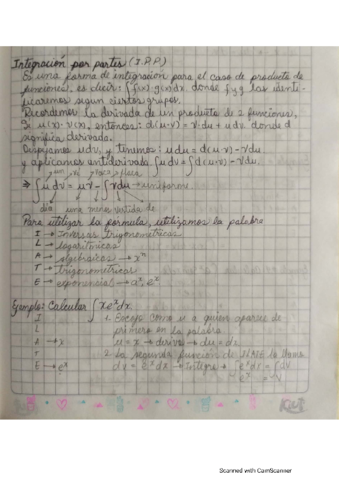 Integración por partes (I.P.P)
Es una forma de integración para el caso de producto de
funciones, es decir: ∫f(x)·g(x)dx donde f y g las identi-
ficaremos segun ciertos grupos.
Recordemos la derivada de un producto de 2 funciones,
Si u(x)·v(x), entonces: d(u·v) = v·du + u dv. donde d
significa derivada.
Despejamos u dv, y tenemos: u dv = d(u·v) - v du
y aplicamos antiderivada ∫u dv = ∫d(u·v) - v du.
⇒ ∫u dv = uv - ∫v du → uniforme
día una menos vestida de
Para utilizar la formula, utilizamos la palabra
I → Inversas trigonometricas
L → logaritmicas
A → algebraicas → xⁿ
T → trigonometricas
E → exponencial → aˣ, eˣ
Ejemplo: Calcular ∫xeˣdx
I 1. Escojo como u a quien aparece de
L primero en la palabra
A → x u = x → derivo → du = dx
T 2. La segunda función de ILATE la llamo
E → eˣ dv = eˣdx → integro → ∫eˣdx = ∫dv
eˣ = v
Scanned with CamScanner